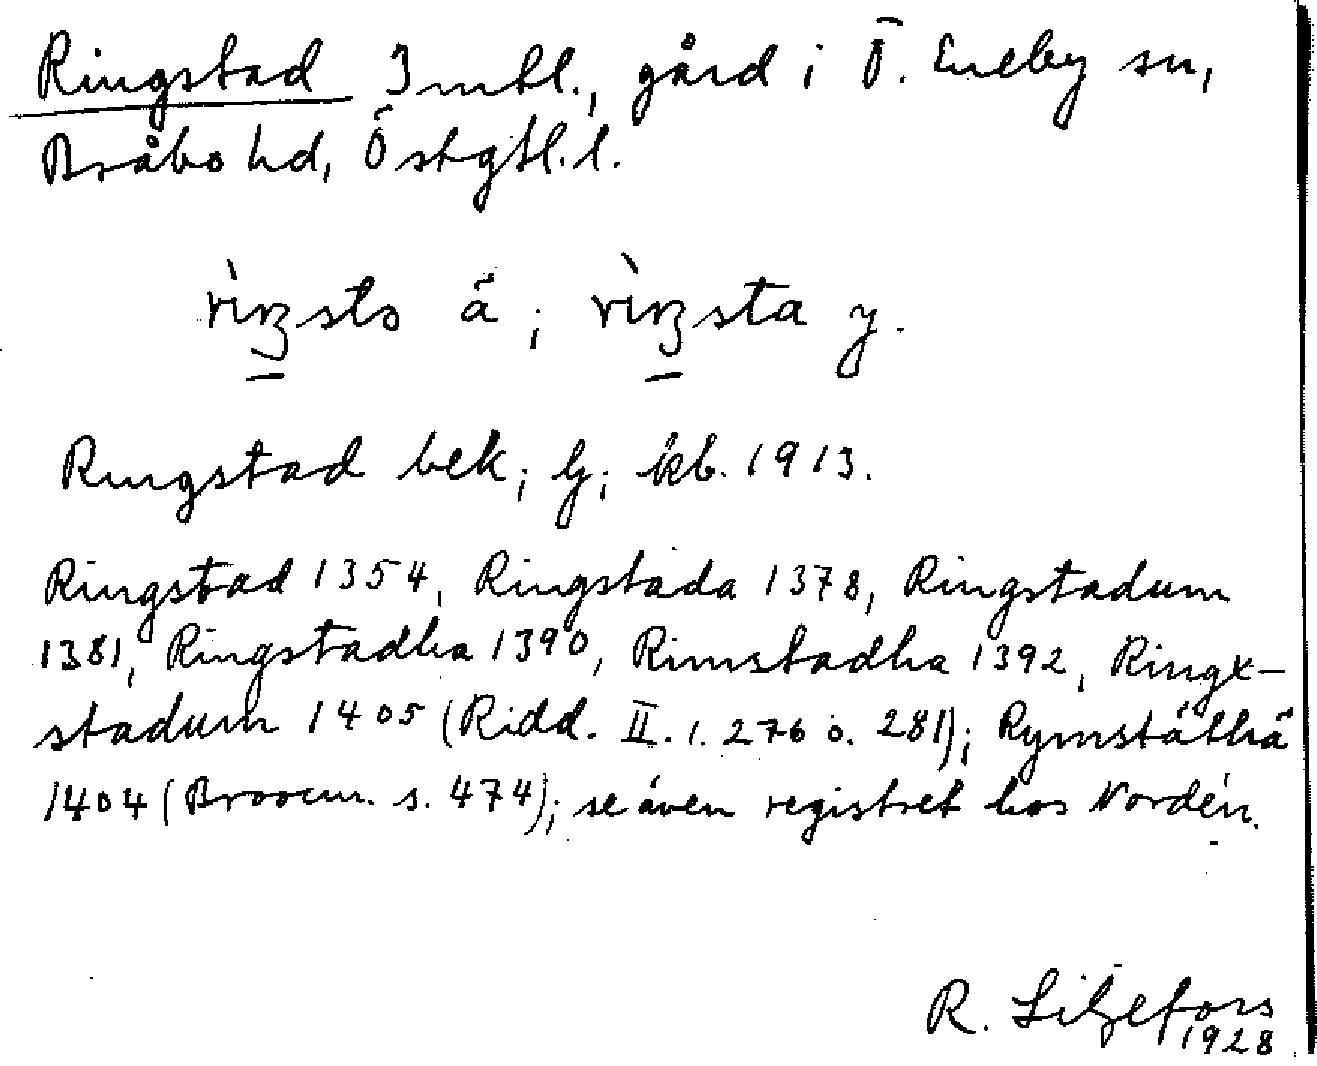 Ringstad 3 mtl., gård i Ö. Eneby sn,
Bråbo hd, Östgtl. l.
rìŋsto ä; rìŋsta y.
Ringstad bek; lj; kb. 1913.
Ringstad 1354, Ringstada 1378, Ringstadum
1381, Ringstadha 1390, Rimstadha 1392, Ringx-
stadum 1405 (Ridd. II. 1. 276 o. 281); Rymstäthä
1404 (Broocm. s. 474); se även registret hos Nordén.
R. Liljefors
1928